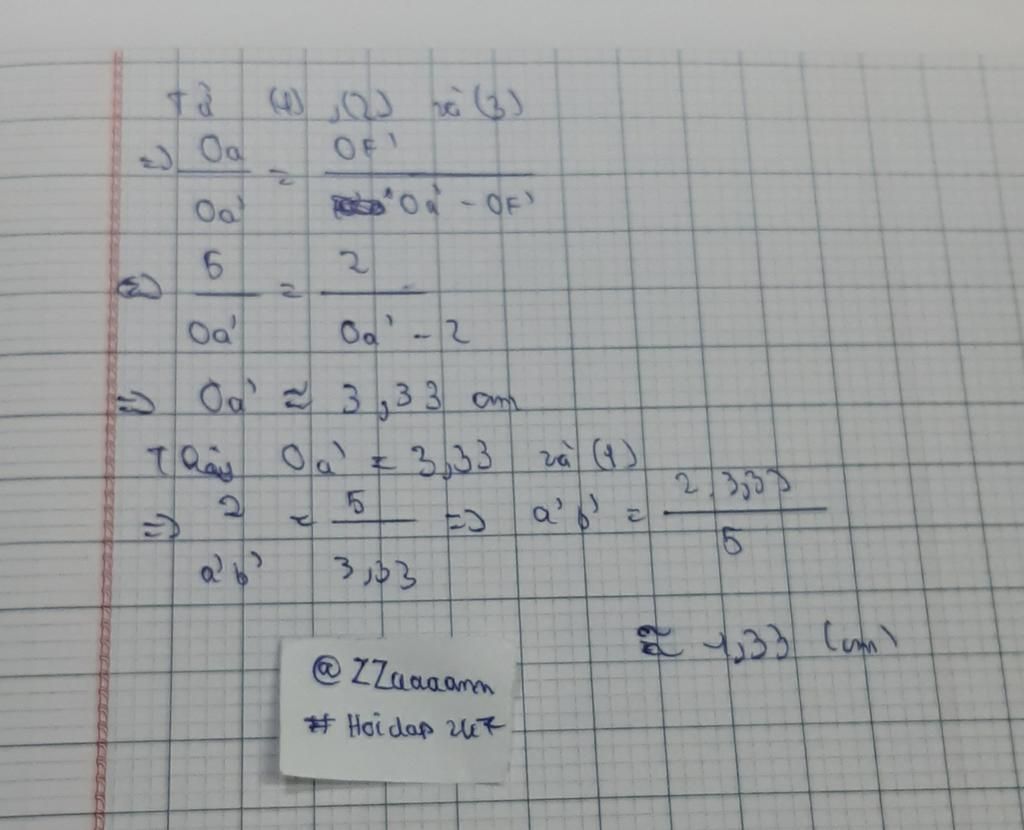 Từ (1), (2) và (3)
=> Oa / Oa' = OF' / Oa' - OF'
<=> 5 / Oa' = 2 / Oa' - 2
=> Oa' ≈ 3,33 cm
Thay Oa' = 3,33 và (1)
=> 2 / a'b' = 5 / 3,33 => a'b' = 2.3,33 / 5
≈ 1,33 (cm)
@ZZaaaann
# Hoidap 247